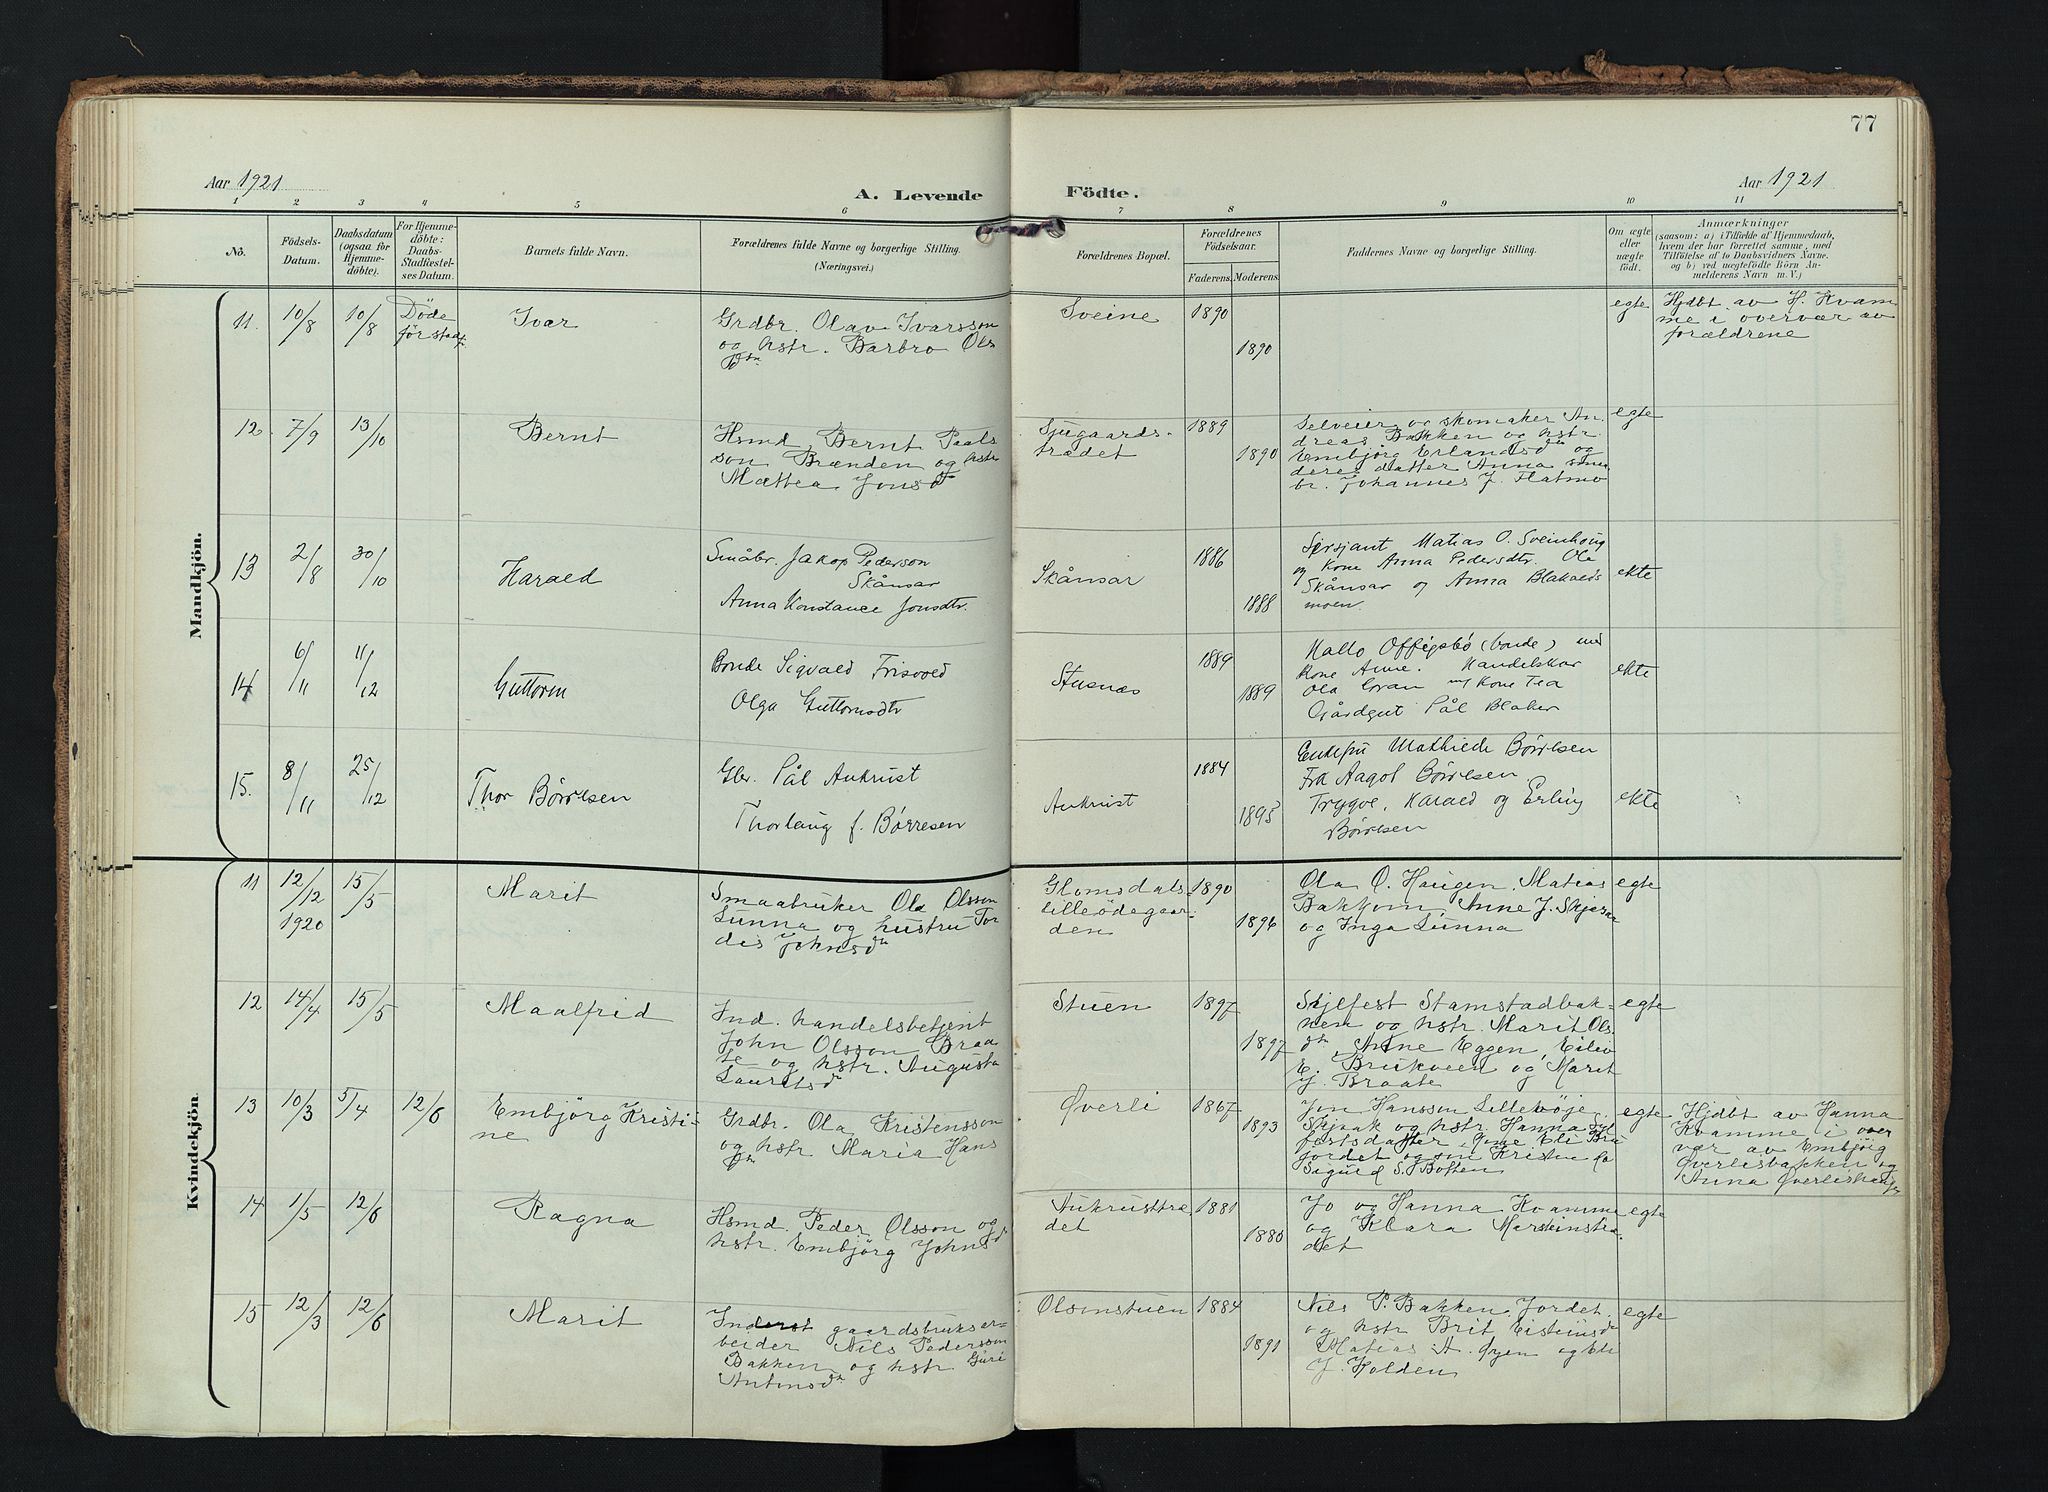 77
Aar 1921
A. Levende Födte.
Aar 1921
1 2 3 4 5 6 7 8 9 10 11
No.
Födsels-
Datum.
Daabsdatum
(ogsaa for
Hjemme-
döbte).
For Hjemme-
döbte:
Daabs-
Stadfæstel-
ses Datum.
Barnets fulde Navn.
Forældrenes fulde Navne og borgerlige Stilling.
(Næringsvei.)
Forældrenes Bopæl.
Forældrenes
Födselsaar.
Faderens. Moderens.
Faddernes Navne og borgerlige Stilling.
Om ægte
eller
uægte
födt.
Anmærkninger
(saasom: a) i Tilfælde af Hjemmedaab,
hvem der har forrettet samme, med
Tilföielse af to Daabsvidners Navne.
og b) ved uegtefödte Börn An-
melderens Navn m. V.)
Mandkjön.
11. 10/8 10/8 Döde
før stadf.
Ivar
Grdbr. Olav Ivarsson
og hstr. Barbro Ols
dtr
Sveine
1890
1890
egte
Hjdbt av H. Kvam
me i overvær av
forældrene
12. 7/9 13/10
Bernt
Hsmd. Bernt Paals
son Brænden og hstr
Mattea Jonsdtr
Sjugaards-
trædet
1889
1890
Selveier og skomaker An-
dreas Bakken og hstr.
Embjörg Erlandsdtr og
deres datter Anna
br. Johannes J. Flatmo
egte
13 2/8 30/10
Harald
Småbr. Jakop Pederson
Skånsar
Anna Konstance Jonsdtr.
Skånsar
1886
1888
Sersjant Matias O. Sveinhoug
og kone Anna Pedersdtr. Ole
Skånsar og Anna Blakaeds
moen.
ekte
14 6/11 11/12
Guttorm
Bonde Sigvald Frisvold
Olga Guttormsdtr
Stusnæs
1889
1889
(bonde) med
kone Anne. Handelskar
Ola Gran m/ kone Tea
Gårdgut Pål Blaker
ekte
15. 8/11 25/12
Thor Börresen
Gbr. Pål Aukrust
Thorlaug f. Børresen
Aukrust
1884
1895
Enkefru Mathilde Børresen
Fra Aagot Børresen
Trygve, Harald og Erling
Børresen
ekte
Kvindekjön.
11 12/12
1920
15/5
Marit
Smaabruker Ola Olsson
Lunna og hustru Tor
dis Johnsdtr
Glomsdals-
lilleødegaar-
den
1890
1896
Ola O. Haugen, Matias
Bakkom, Anne J. Skjaar
og Inga Lunna
egte
12 14/4 15/5
Maalfrid
Ind. handelsbetjent
John Olsson Braa-
te og hstr. Augusta
Lauritsdtr
Stuen
1897
1897
Stamstadbak-
ken og hstr. Marit Ols-
dtr, Anne Eggen, Eiliv
E. Brukveen og Marit
J. Braate
egte
13 10/3 5/4 12/6
Embjörg Kristi-
ne
Grdbr. Ola Kristensson
og hstr. Maria Hans
dtr
Øverli
1867
1893
Jon Hansson Lillebøje
Skjaak og hstr. Hanna Syl
festsdatter, Eli Bru
jordet og søn Kristen og
Sigurd S. Boften
egte
Hjdbt av Hanna
Kvamme i over
vær av Embjörg
Øverlisbakken og
Anna Øverlishaug
14 1/5 12/6
Ragna
Hsmd. Peder Olsson og
hstr. Embjörg Johnsdtr
Aukrusttræ-
det
1881
1880
Jo og Hanna Kvamme
og Klara Marsteinstræ
det
egte
15 12/3 12/6
Marit
Inderst gaardsbruksar-
beider Nils Pedersson
Bakken og hstr Guri
Antonsdtr
Olsenstuen
1884
1891
Nils P. Bakken, Jordet
og hstr Brit Eisteinsdtr
Matias A. Øyen og
J. Holden
egte